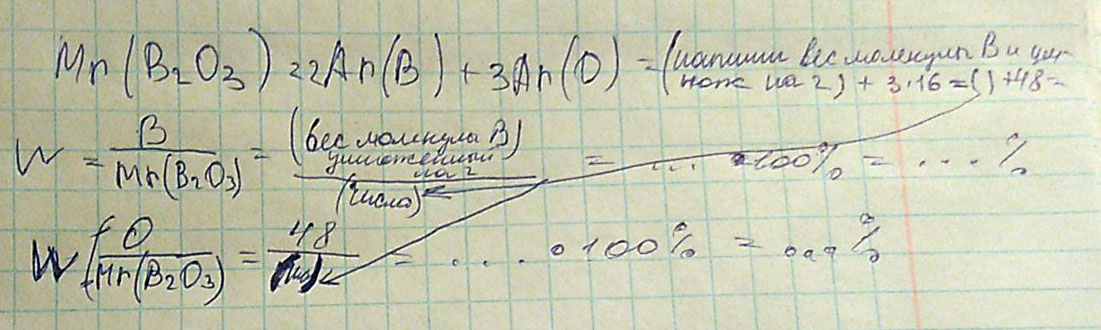 Mr(B₂O₃) = 2Ar(B) + 3Ar(O) = (напиши вес молекулы B и
нож на 2) + 3·16 = ( ) + 48 =
W = B/Mr(B₂O₃) = (вес молекулы B) умноженный на 2/(число) = ... ·100% = ...%
W = O/Mr(B₂O₃) = 48/ = ... ·100% = ...%